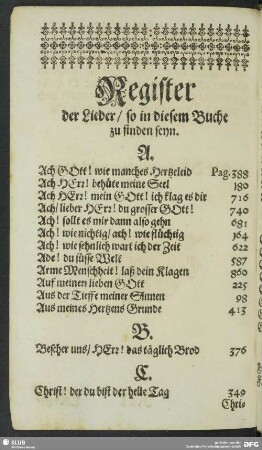 Register
der Lieder / so in diesem Buche
zu finden seyn.
A.
Ach GOtt! wie manches Hertzeleid Pag. 388
Ach HErr! behüte meine Seel 180
Ach HErr! mein GOtt! ich klag es dir 716
Ach / lieber HErr! du grosser GOtt! 740
Ach! solte es mir dann also gehn 681
Ach! wie nichtig / ach! wie flüchtig 164
Ach! wie sehnlich wart ich der Zeit 622
Ade! du süsse Welt 587
Arme Menschheit! laß dein Klagen 860
Auf meinen lieben GOtt 225
Aus der Tieffe meiner Sinnen 98
Aus meines Hertzens Grunde 413
B.
Bescher uns / HErr! das täglich Brod 376
C.
Christ! der du bist der helle Tag 349
Chri-
SLUB
DFG